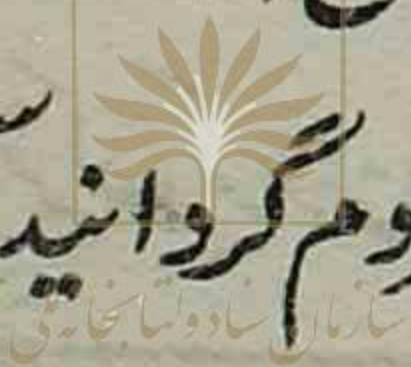 وم گردانید
سازمان اسناد و کتابخانه ملی